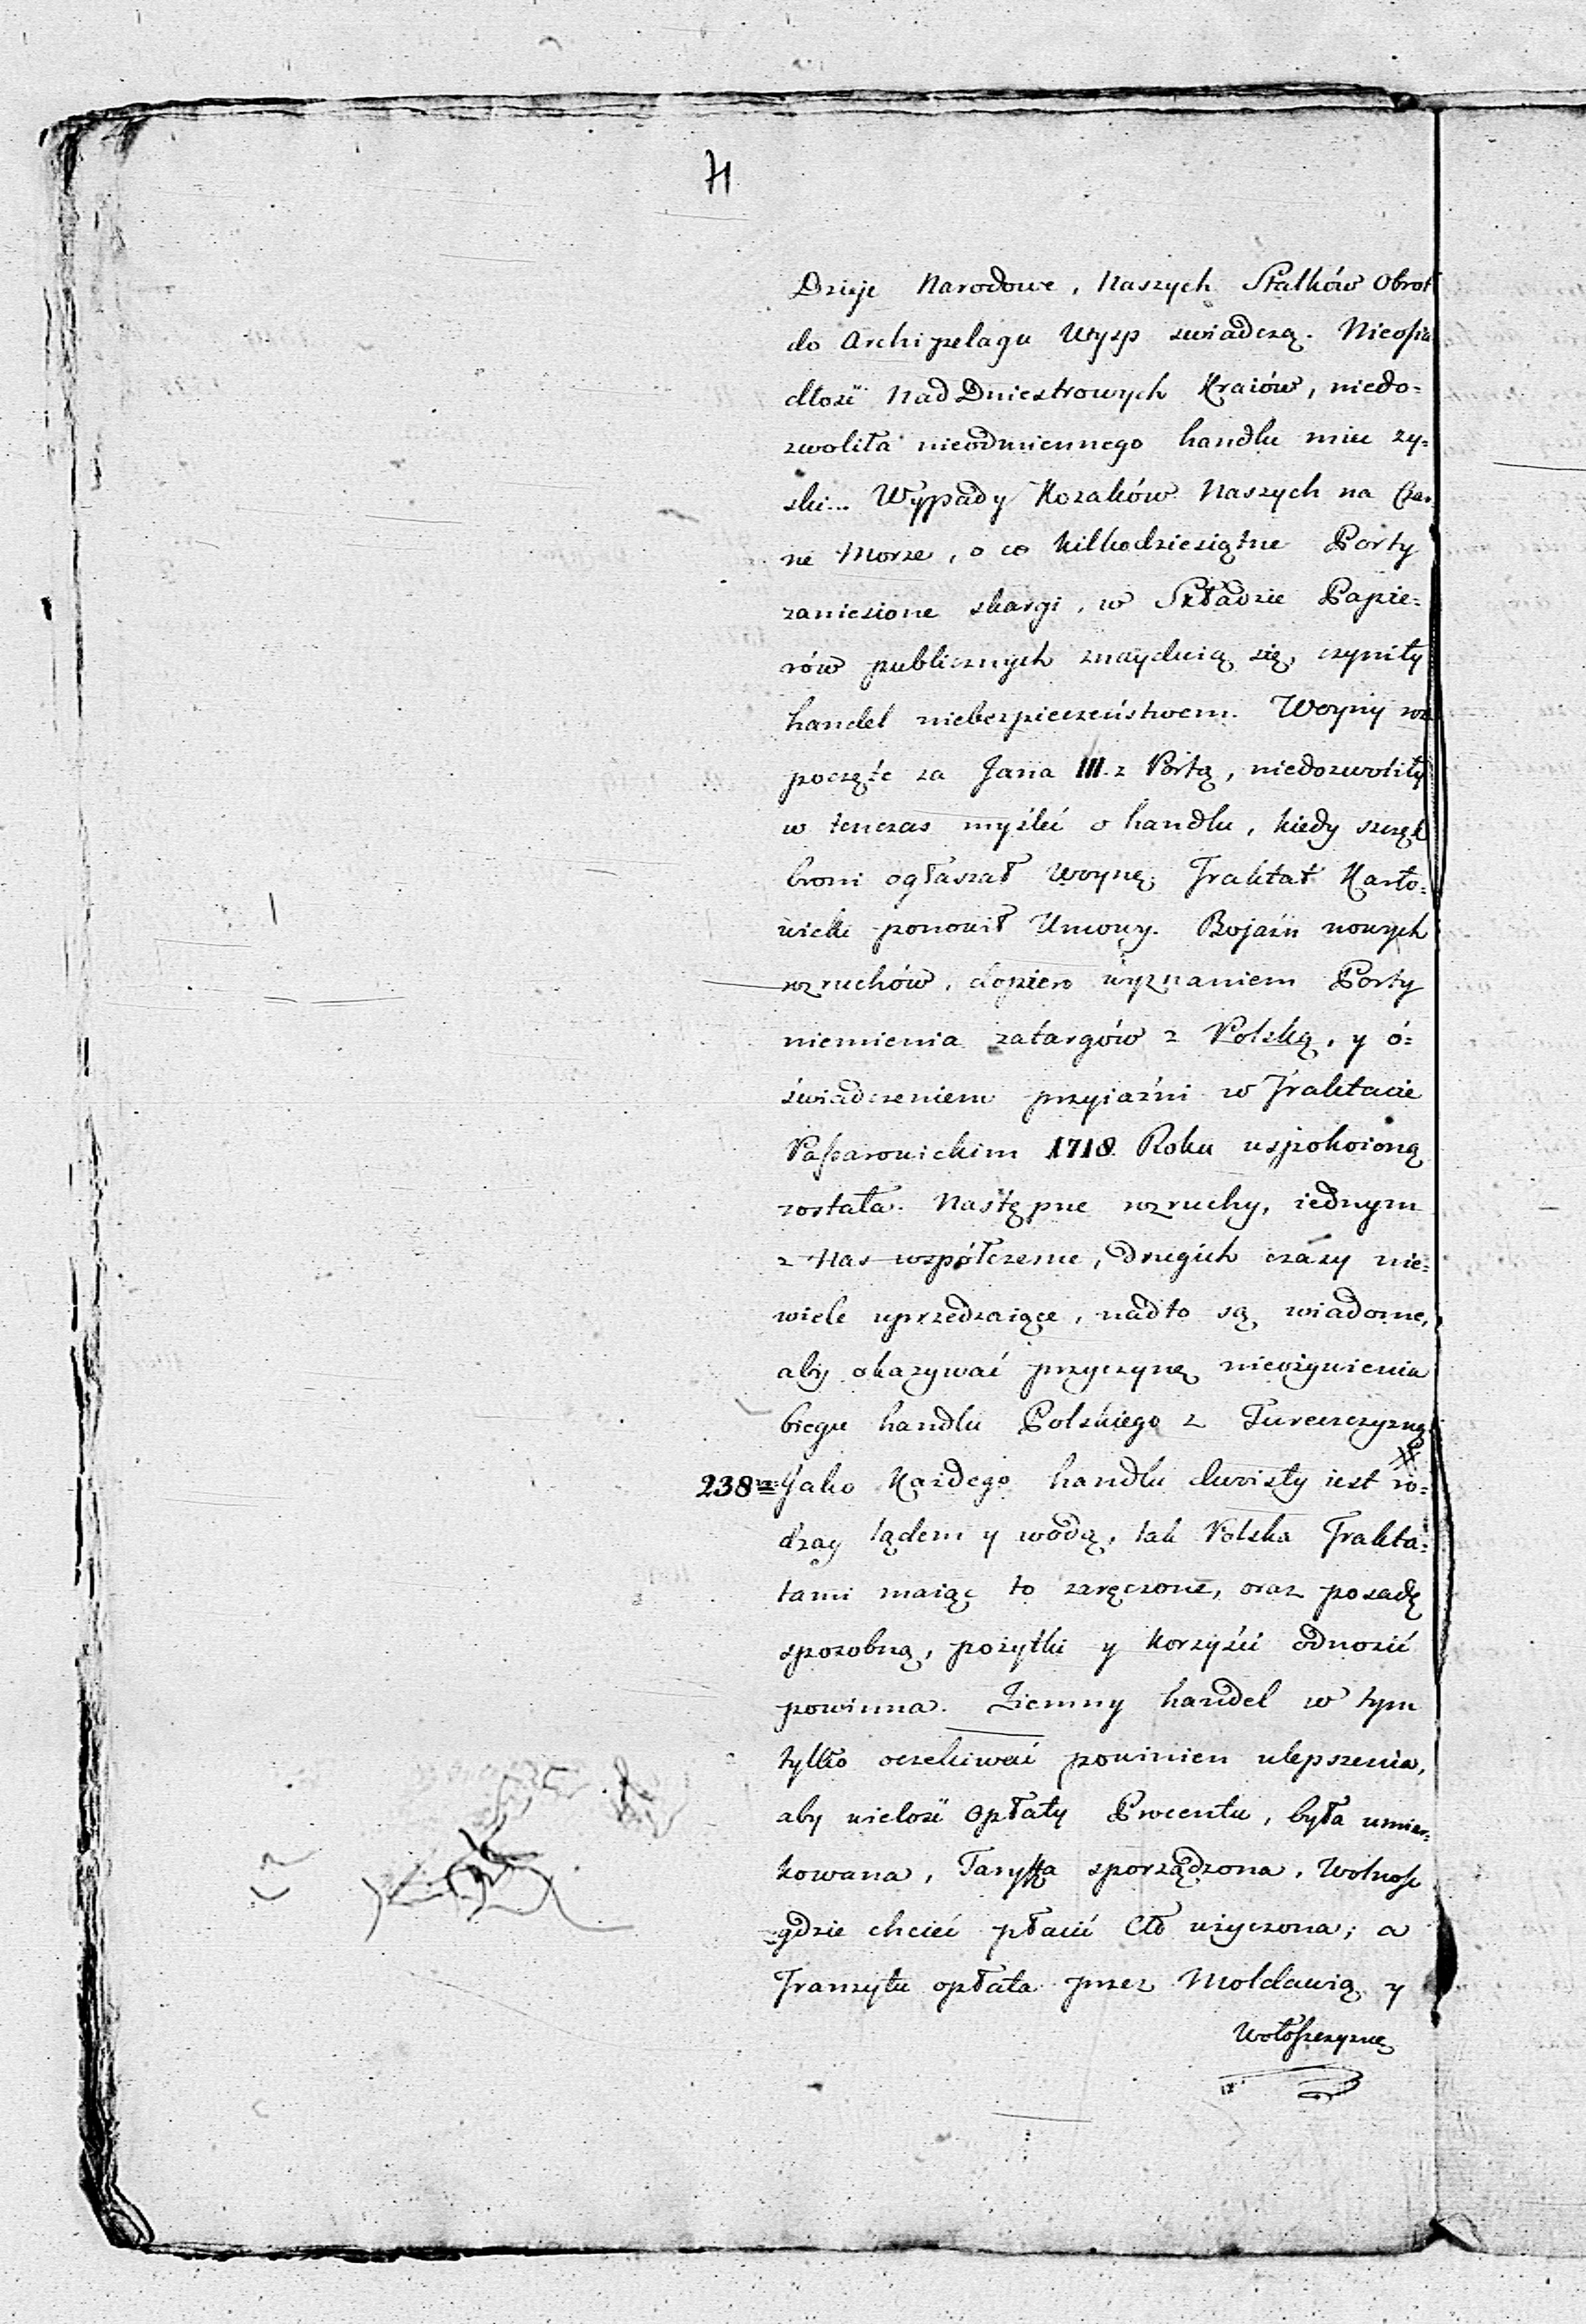 71
Dzieje Narodowe, Naszych Statków Obrot
do Archipelagu Wysp swiadczą. Nieosia
dłość Nad Dniestrowych Kraiów, niedo=
zwoliła nieodmiennego handlu mieć zy=
ski... Wypady Kozaków Naszych na Czar
ne Morze, o co kilkodziesiątne Porty
zaniesione skargi, w Składzie Papie=
rów publicznych znayduią się, czyniły
handel niebezpieczeństwem. Woyny roz
poczęte za Jana III. z Portą, niedozwoliły
w tenczas myśleć o handlu, kiedy szczęk
broni ogłaszał Woynę. Traktat Karło=
wicki ponowił Umowy. Bojaźń nowych
wzruchów, dopiero wyznaniem Porty
niemienia zatargów z Polską, y o=
świadczeniem przyiaźni w Traktacie
Passarowickim 1718. Roku uspokoioną
została. Następne wzruchy, iednym
z Nas współczesne, drugich czasy nie=
wiele uprzedzaiące, nadto są wiadome,
aby okazywać przyczynę nieożywienia
biegu handlu Polskiego z Turecczyzną.
238vo= Jako Każdego handlu dwoisty iest ro=
dzay lądem y wodą, tak Polska Trakta=
tami maiąc to zaręczone, oraz posadę
sposobną, pożytki y korzyści odnosić
powinna. Ziemny handel w tym
tylko oczekiwać powinien ulepszenia,
aby wielość Opłaty Procentu, była umiar=
kowana, Taryffa sporządzona, Wolnosc
gdzie chcieć płacić Cło użyczona; a
Tranzytu opłata przez Mołdawią y
Wołoszczyznę